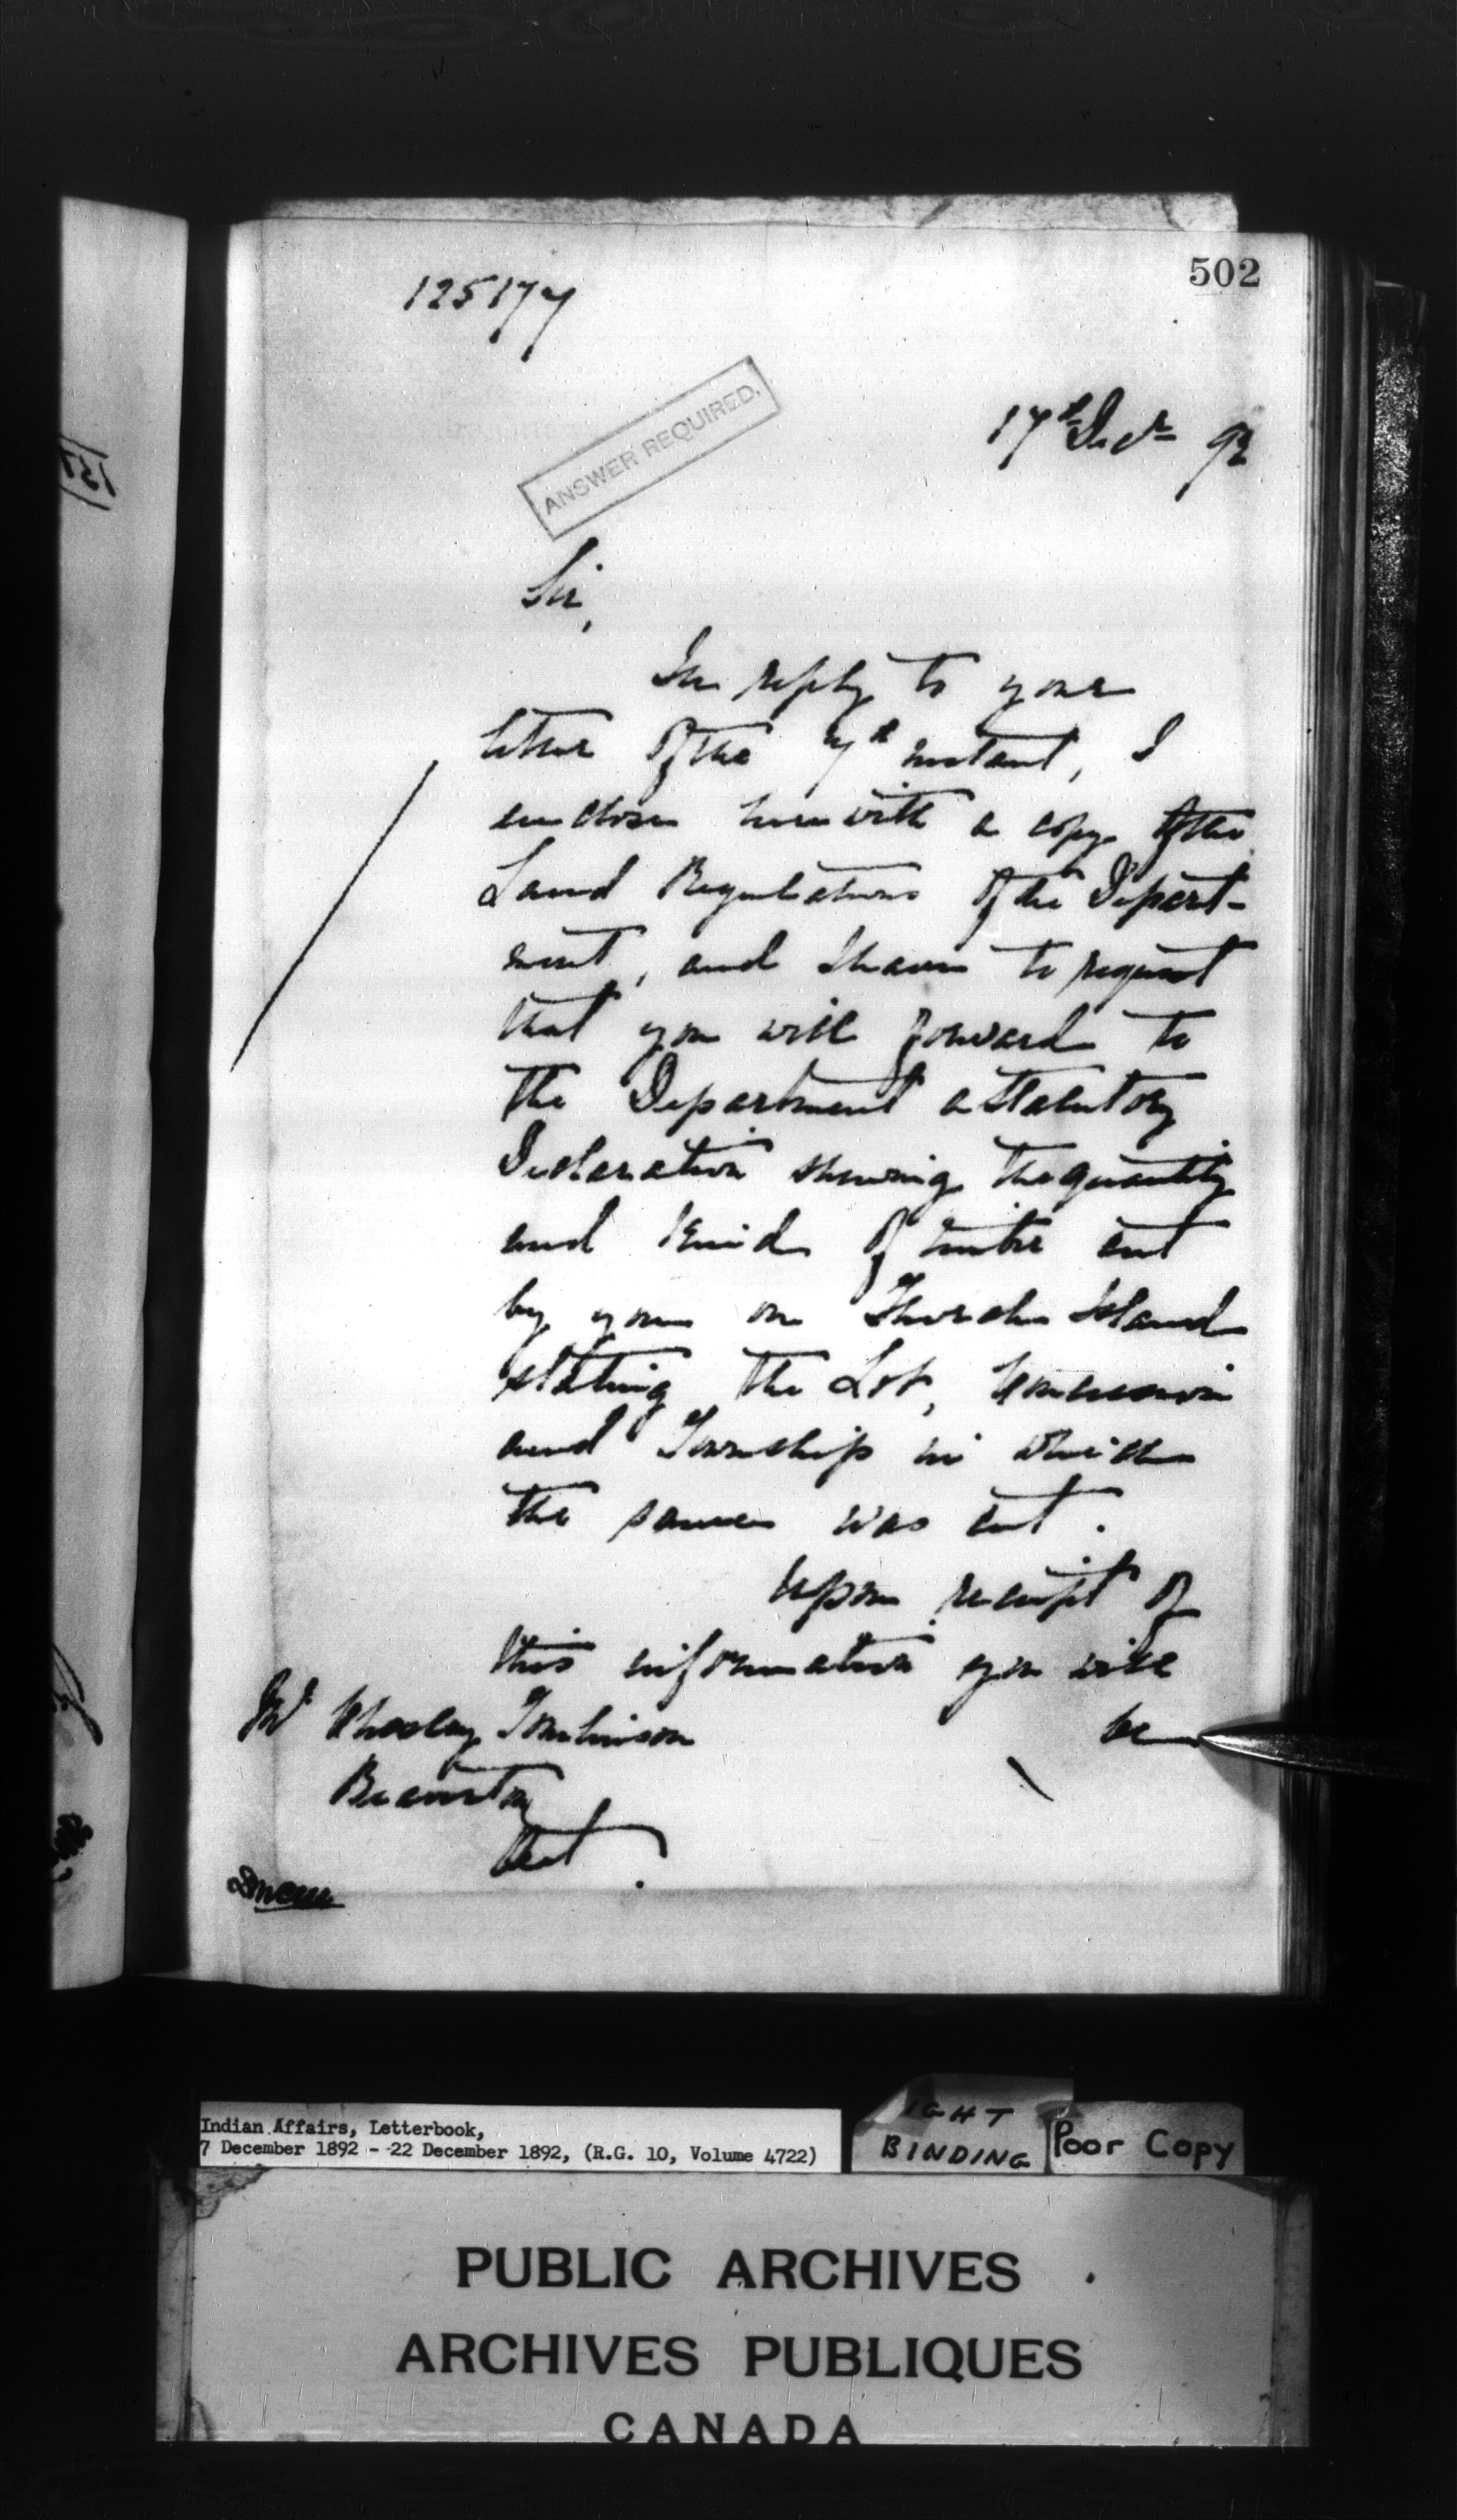 502
125177
ANSWER REQUIRED.
17th Decr 92
Sir,
In reply to your
letter of the 7th instant, I
enclose herewith a copy of the
Land Regulations of the Depart-
ment, and I have to request
that you will forward to
the Department a Statutory
Declaration shewing the quantity
and kind of timber cut
by you on Thorah Island
stating the Lot, Concession
and Township in which
the same was cut.
Upon receipt of
this information you will
be
Mr Tomlinson
Beaverton
Ont.
Indian Affairs, Letterbook,
7 December 1892 - 22 December 1892, (R.G. 10, Volume 4722)
IGHT
BINDING
Poor Copy
PUBLIC ARCHIVES
ARCHIVES PUBLIQUES
CANADA